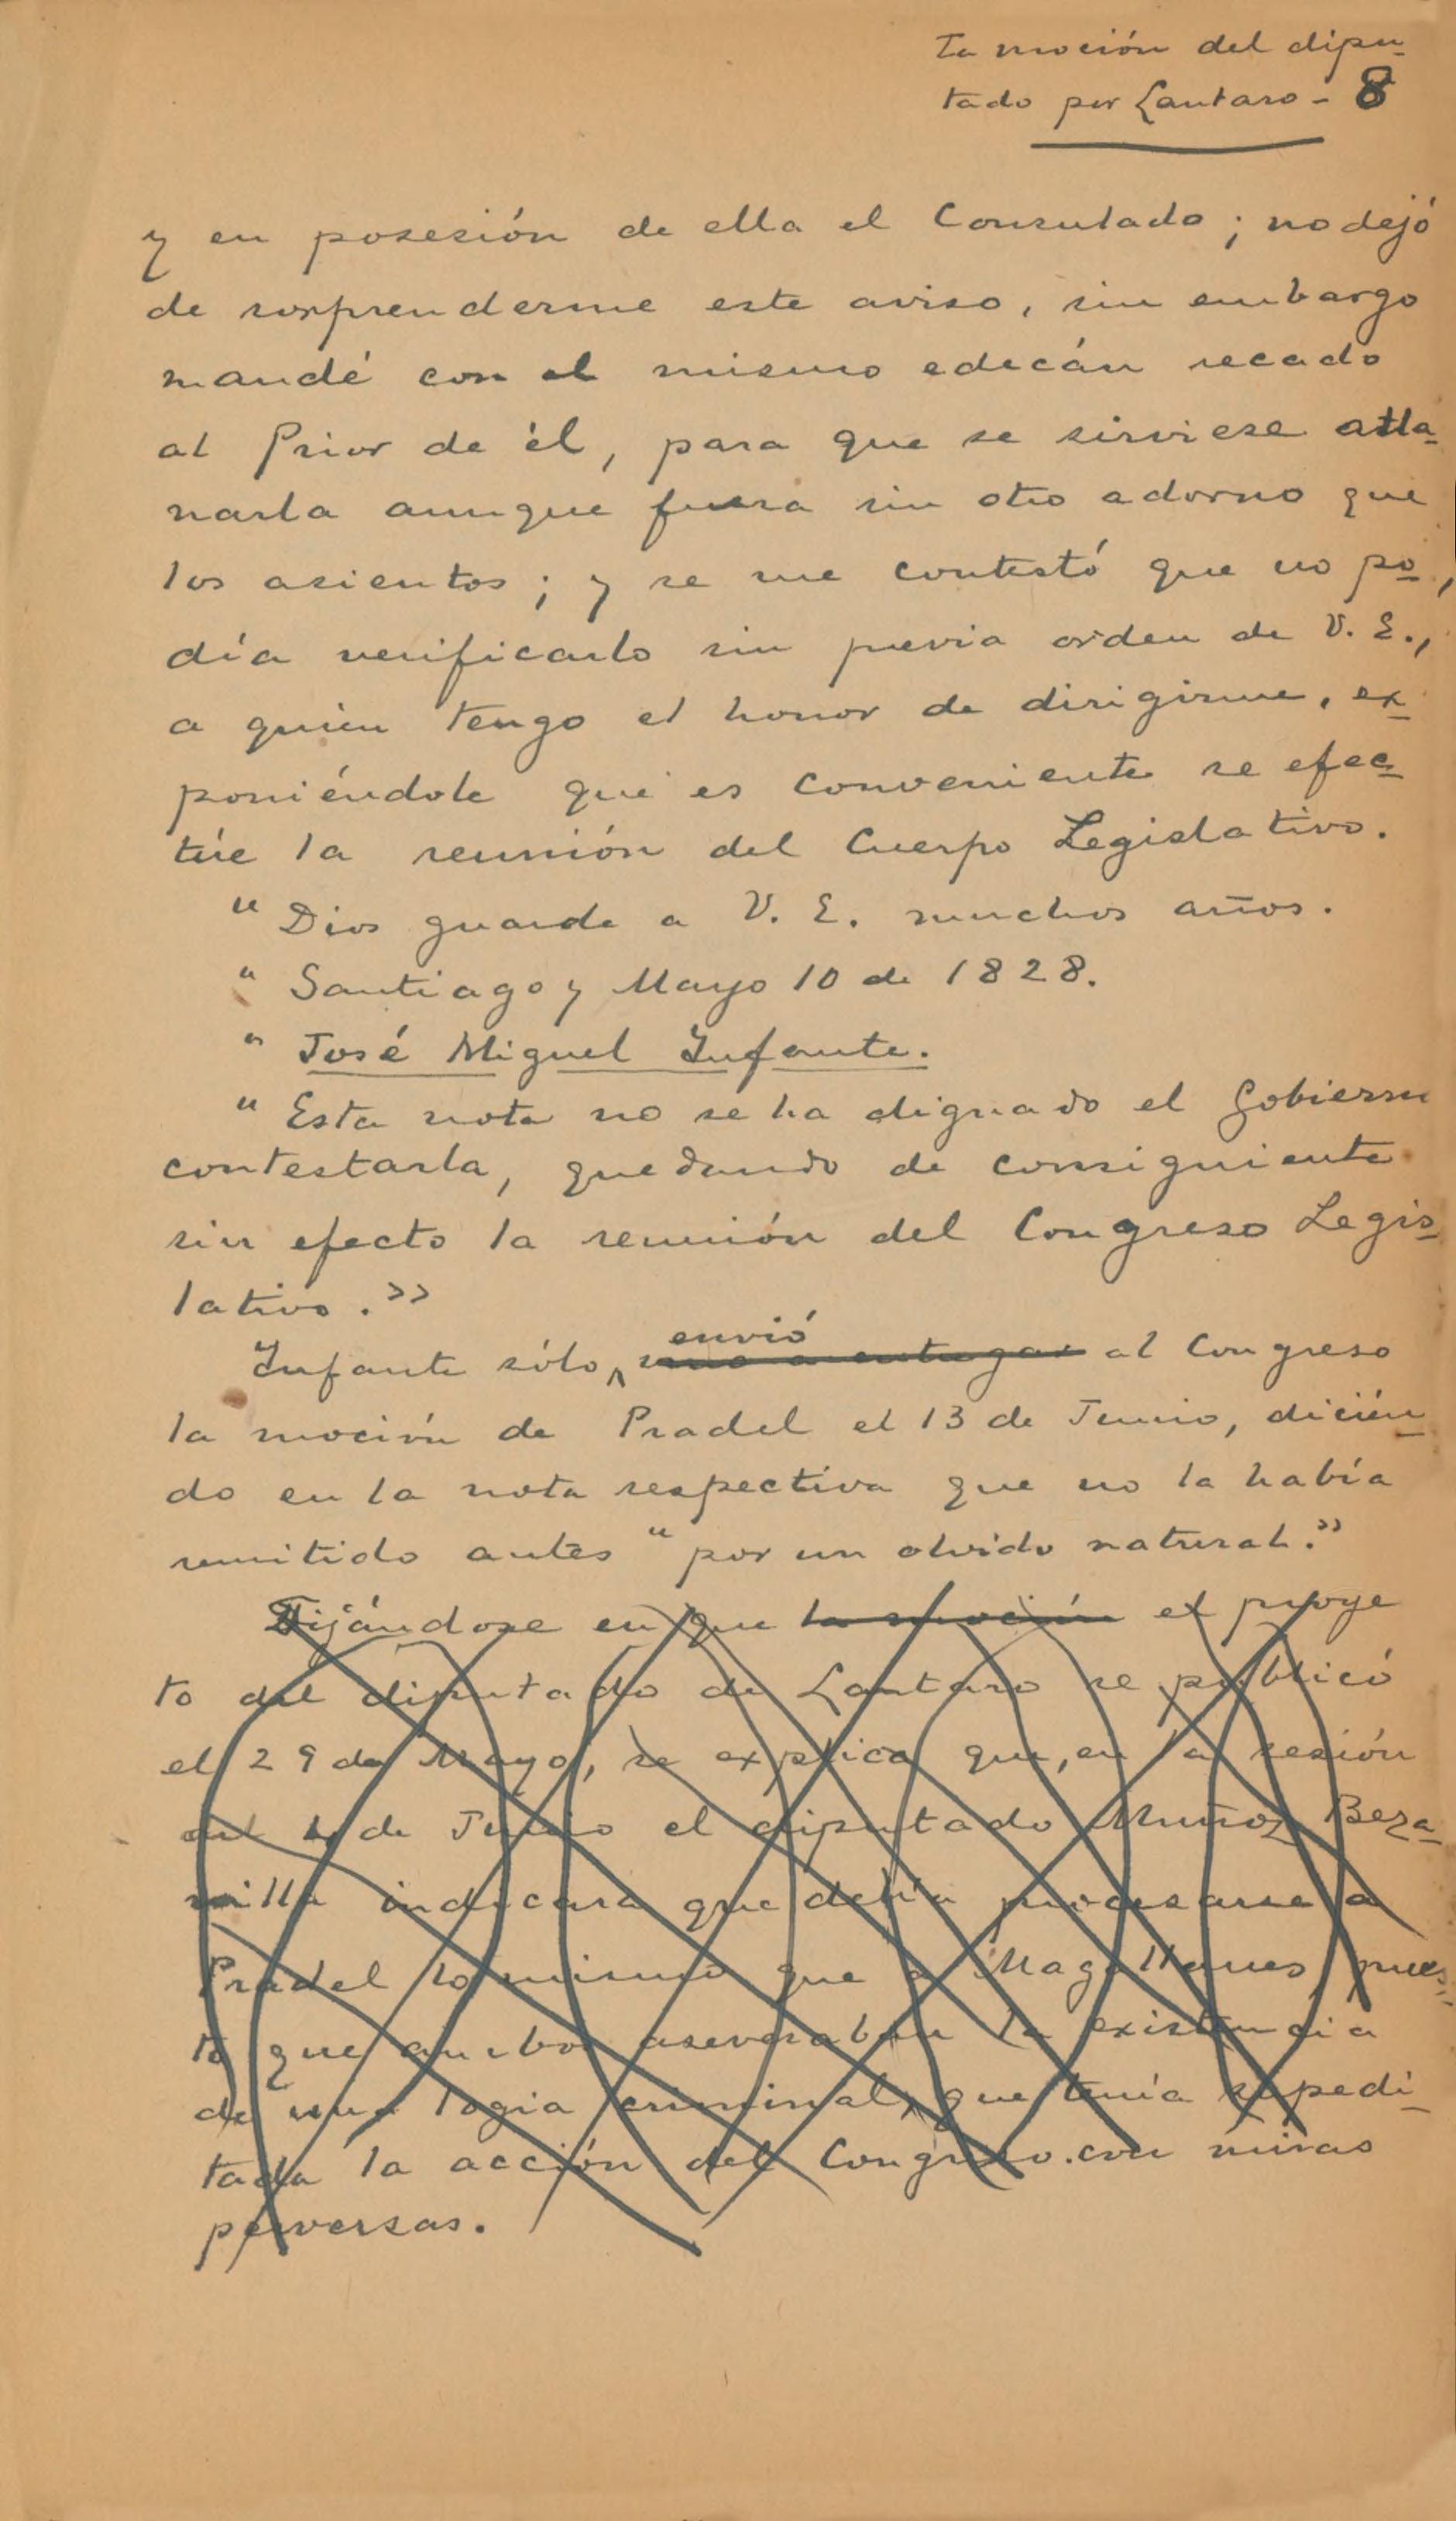 La moción del dipu-
tado por Lautaro - 8
y en posesión de ella el Consulado; no dejó
de sorprenderme este aviso, sin embargo
mandé con el mismo edecán recado
al Prior de él, para que se sirviese alla-
narla aunque fuera sin otro adorno que
los asientos; y se me contestó que no po-
día verificarlo sin previa orden de V. E.,
a quien tengo el honor de dirigirme, ex-
poniéndole que es conveniente se efec-
túe la reunión del Cuerpo Legislativo.
" Dios guarde a V. E. muchos años.
" Santiago y Mayo 10 de 1828.
" José Miguel Infante.
" Esta nota no se ha dignado el Gobierno
contestarla, quedando de consiguiente
sin efecto la reunión del Congreso Legis-
lativo.»
envió
Infante sólo vino a entregar al Congreso
la moción de Pradel el 13 de Junio, dicién-
do en la nota respectiva que no la había
remitido antes "por un olvido natural."
Fijándose en que la moción el proye
to del diputado de Lautaro se publicó
el 29 de Mayo, se explica que, en la sesión
del de Junio el diputado Muñoz Beza-
nilla indicara que debía procesarse a
Pradel lo mismo que a Magallanes, pues-
to que ambos aseveraban la existencia
de una logia criminal, que tenía supedi-
tada la acción del Congreso con miras
perversas.